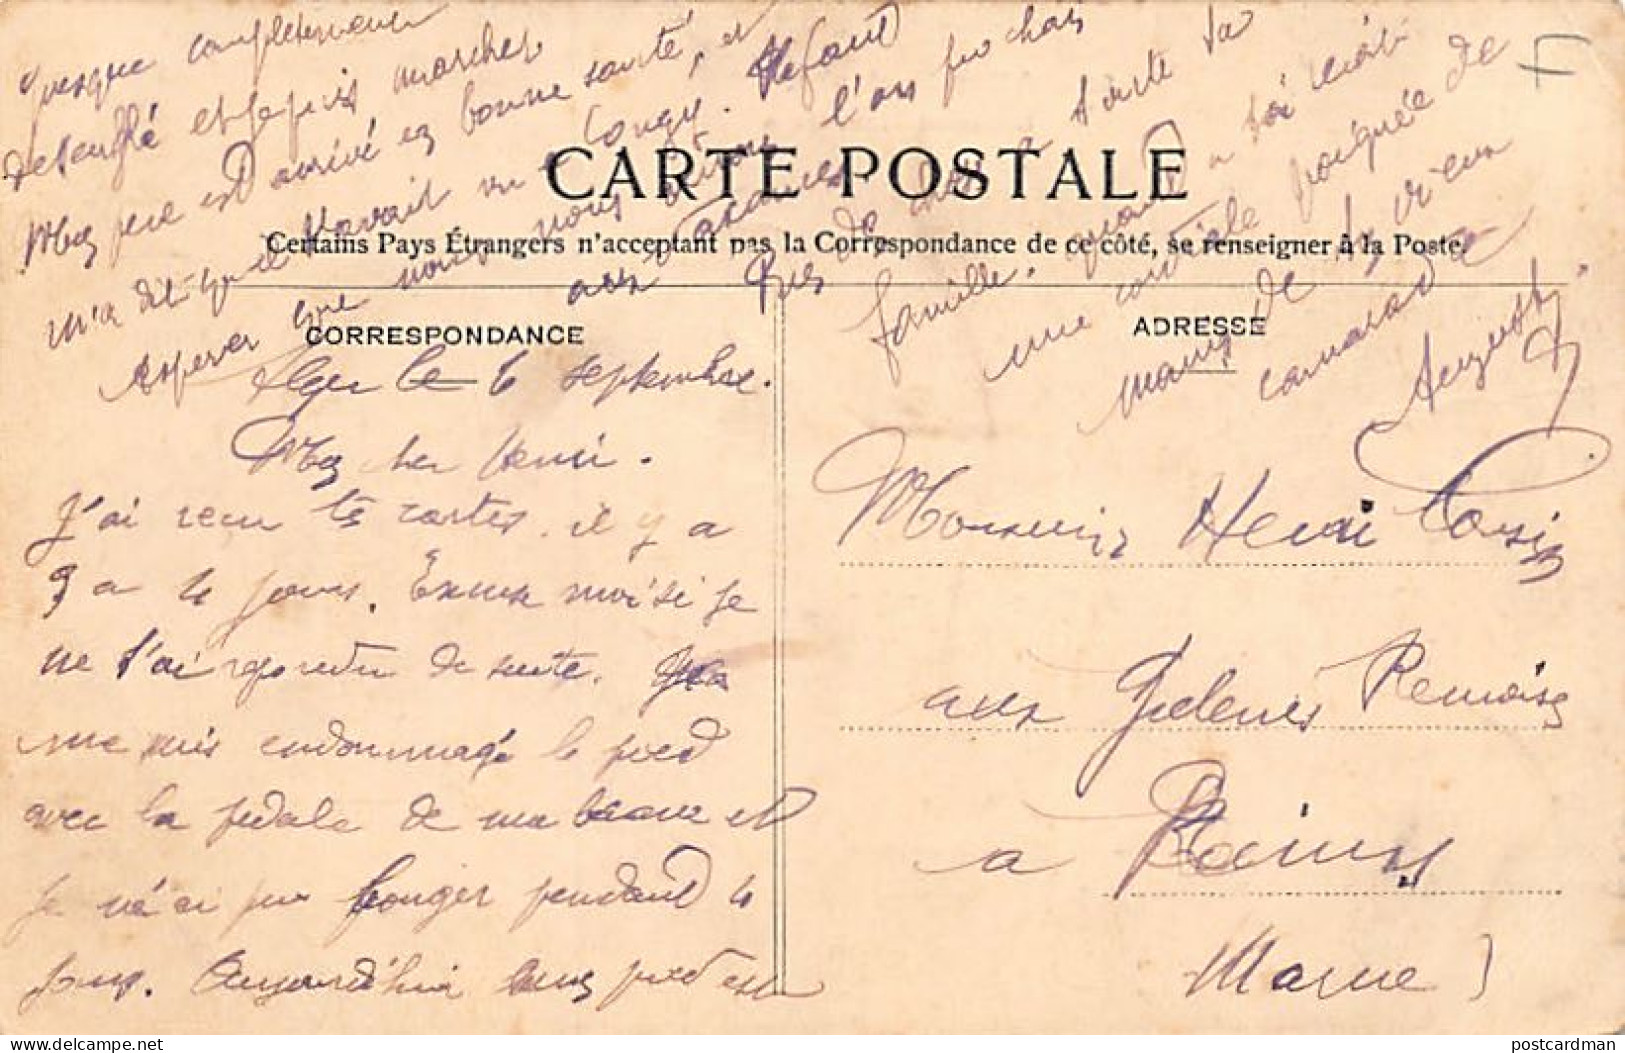 CARTE POSTALE
Certains Pays Étrangers n'acceptant pas la Correspondance de ce côté, se renseigner à la Poste.
CORRESPONDANCE
ADRESSE
Alger le 6 septembre.
Mon cher Henri.
J'ai recu tes cartes. il y a
3 a 4 jours. Excuse moi si je
ne t'ai repondu de suite. Je
me suis endommagé le pied
avec la pedale de ma becane et
je n'ai pu bouger pendant 4
jours. Aujourd'hui mon pied est
presque completement
desenflé et je puis marcher
Mon pere est arrivé en bonne santé, et
m'a dit que tu avait un congé. Il faut
esperer que nous nous
aux vacances l'an prochain
de chose a toute ta
famille, quand a toi reçoit
une cordiale poignée de
mains de ton vieux
camarade
Auguste
Monsieur Henri Cousin
aux Galeries Remoise
a Reims
Marne)
postcardman